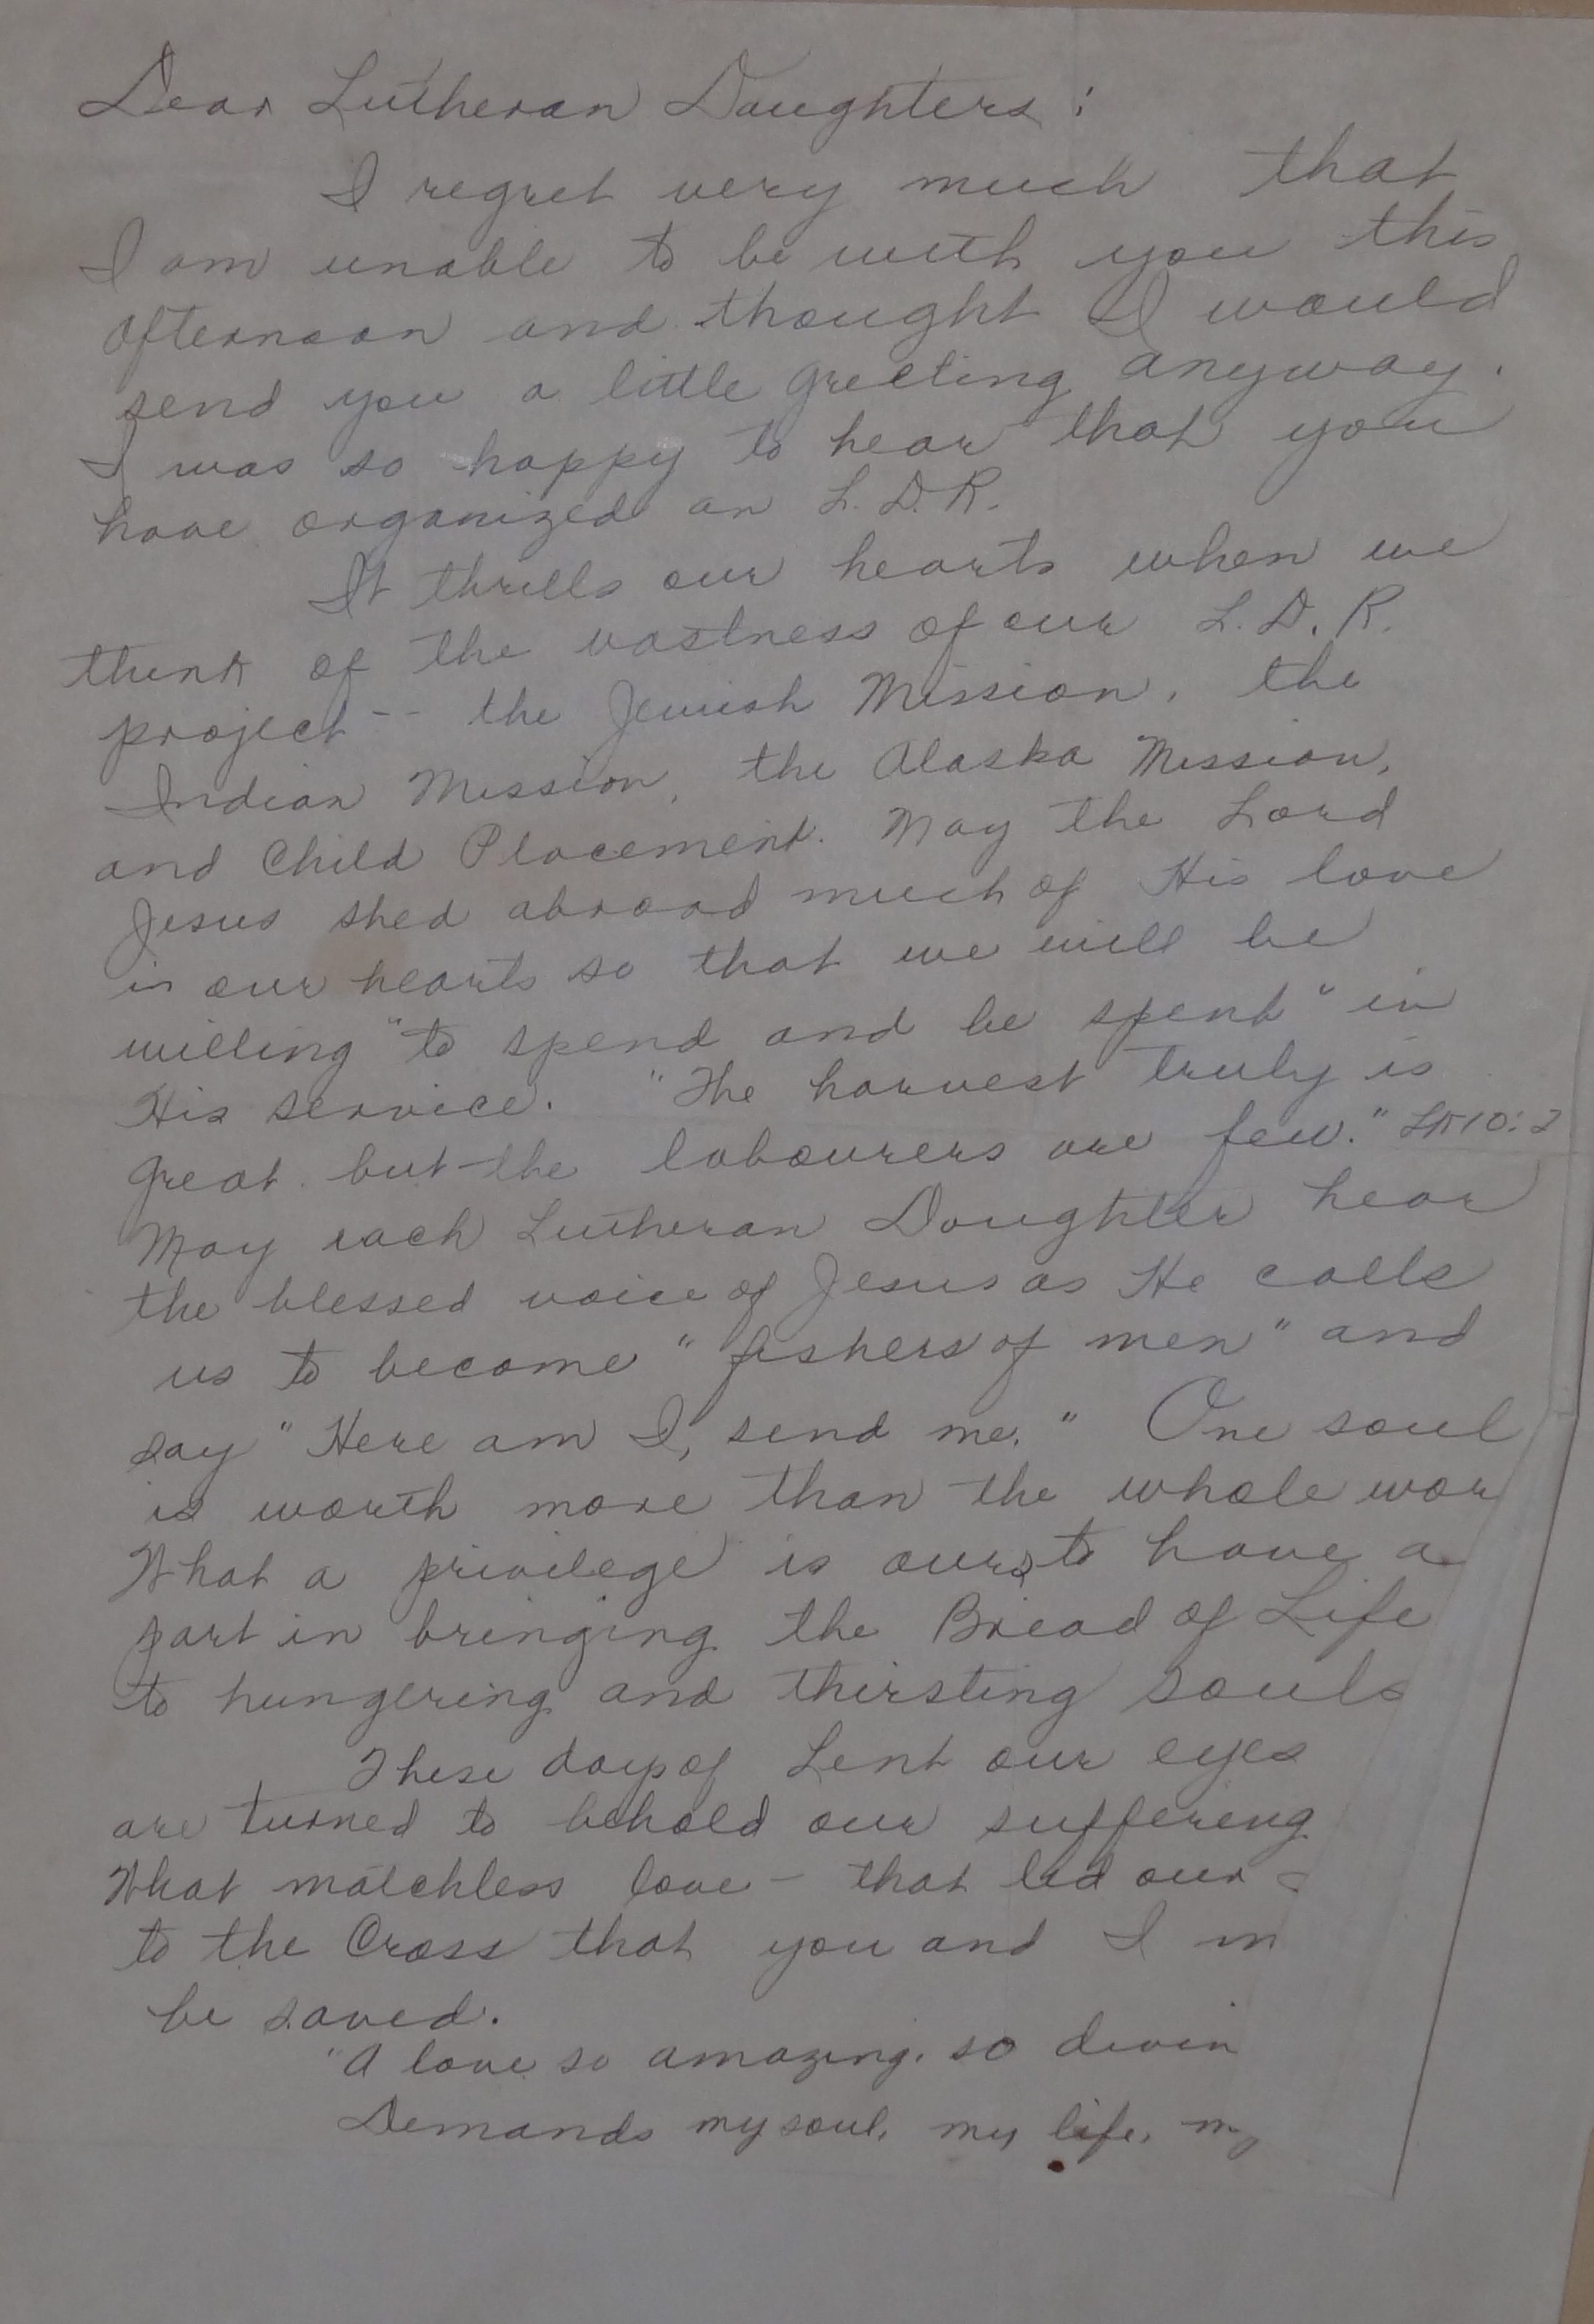 Dear Lutheran Daughters:
I regret very much that
I am unable to be with you this
afternoon and thought I would
send you a little greeting anyway.
I was so happy to hear that you
have organized an L.D.R.
It thrills our hearts when we
think of the vastness of our L.D.R.
project -- the Jewish Mission, the
Indian Mission, the Alaska Mission,
and Child Placement. May the Lord
Jesus shed abroad much of His love
in our hearts so that we will be
willing "to spend and be spent" in
His service. "The harvest truly is
great but the labourers are few." LK 10:2
May each Lutheran Daughter hear
the blessed voice of Jesus as He calls
us to become "fishers of men" and
say "Here am I, send me." One soul
is worth more than the whole wor
What a privilege is ours to have a
part in bringing the Bread of Life
to hungering and thirsting souls
These days of Lent our eyes
are turned to behold our suffering
What matchless love - that led our
to the Cross that you and I m
be saved.
"A love so amazing, so divin
Demands my soul, my life, my